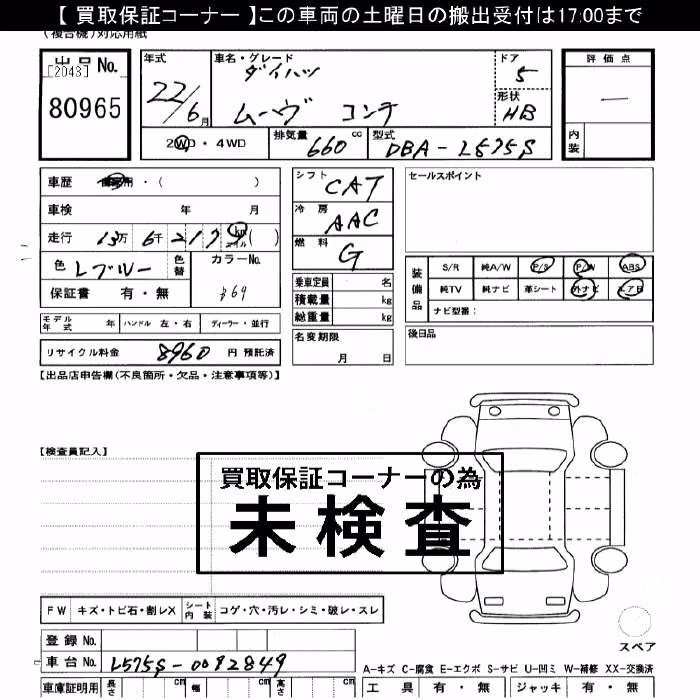 【 買取保証コーナー 】この車両の土曜日の搬出受付は17:00まで
(複合機)対応用紙
出品 No.
[2043]
80965
年式 車名・グレード ドア 評価点
ダイハツ 5
22/6月 ムーヴ コンテ 形状 HB
内装
2WD・4WD 排気量 660 cc 型式 DBA-L575S
車歴 ・( ) シフト CAT セールスポイント
車検 年 月 冷房 AAC
走行 13万 6千 217 km マイル ( ) 燃料 G
色 Lブルー 色替 カラーNo.
保証書 有・無
乗車定員 名
積載量 kg
総重量 kg
装備品 S/R 純A/W P/S P/W ABS
純TV 純ナビ 革シート 外ナビ エアB
ナビ型番:
モデル年式 年 ハンドル 左・右 ディーラー・並行
名変期限 月 日
後日品
リサイクル料金 8960 円 預託済
【出品店申告欄(不良箇所・欠品・注意事項等)】
【検査員記入】
買取保証コーナーの為
未検査
FW キズ・トビ石・割レX シート内装 コゲ・穴・汚レ・シミ・破レ・スレ
スペア
登録 No.
車台 No. L575S-0082849
A-キズ C-腐食 E-エクボ S-サビ U-凹ミ W-補修 XX-交換済
車庫証明用 長さ cm 幅 cm 高さ cm
工具 有・無 ジャッキ 有・無